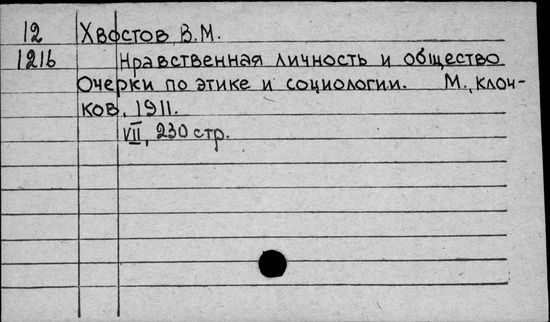 12 Хвостов, В.М.
1216 Нравственная личность и общество
Очерки по этике и социологии. М., Клоч-
ков, 1911.
VII, 230 стр.